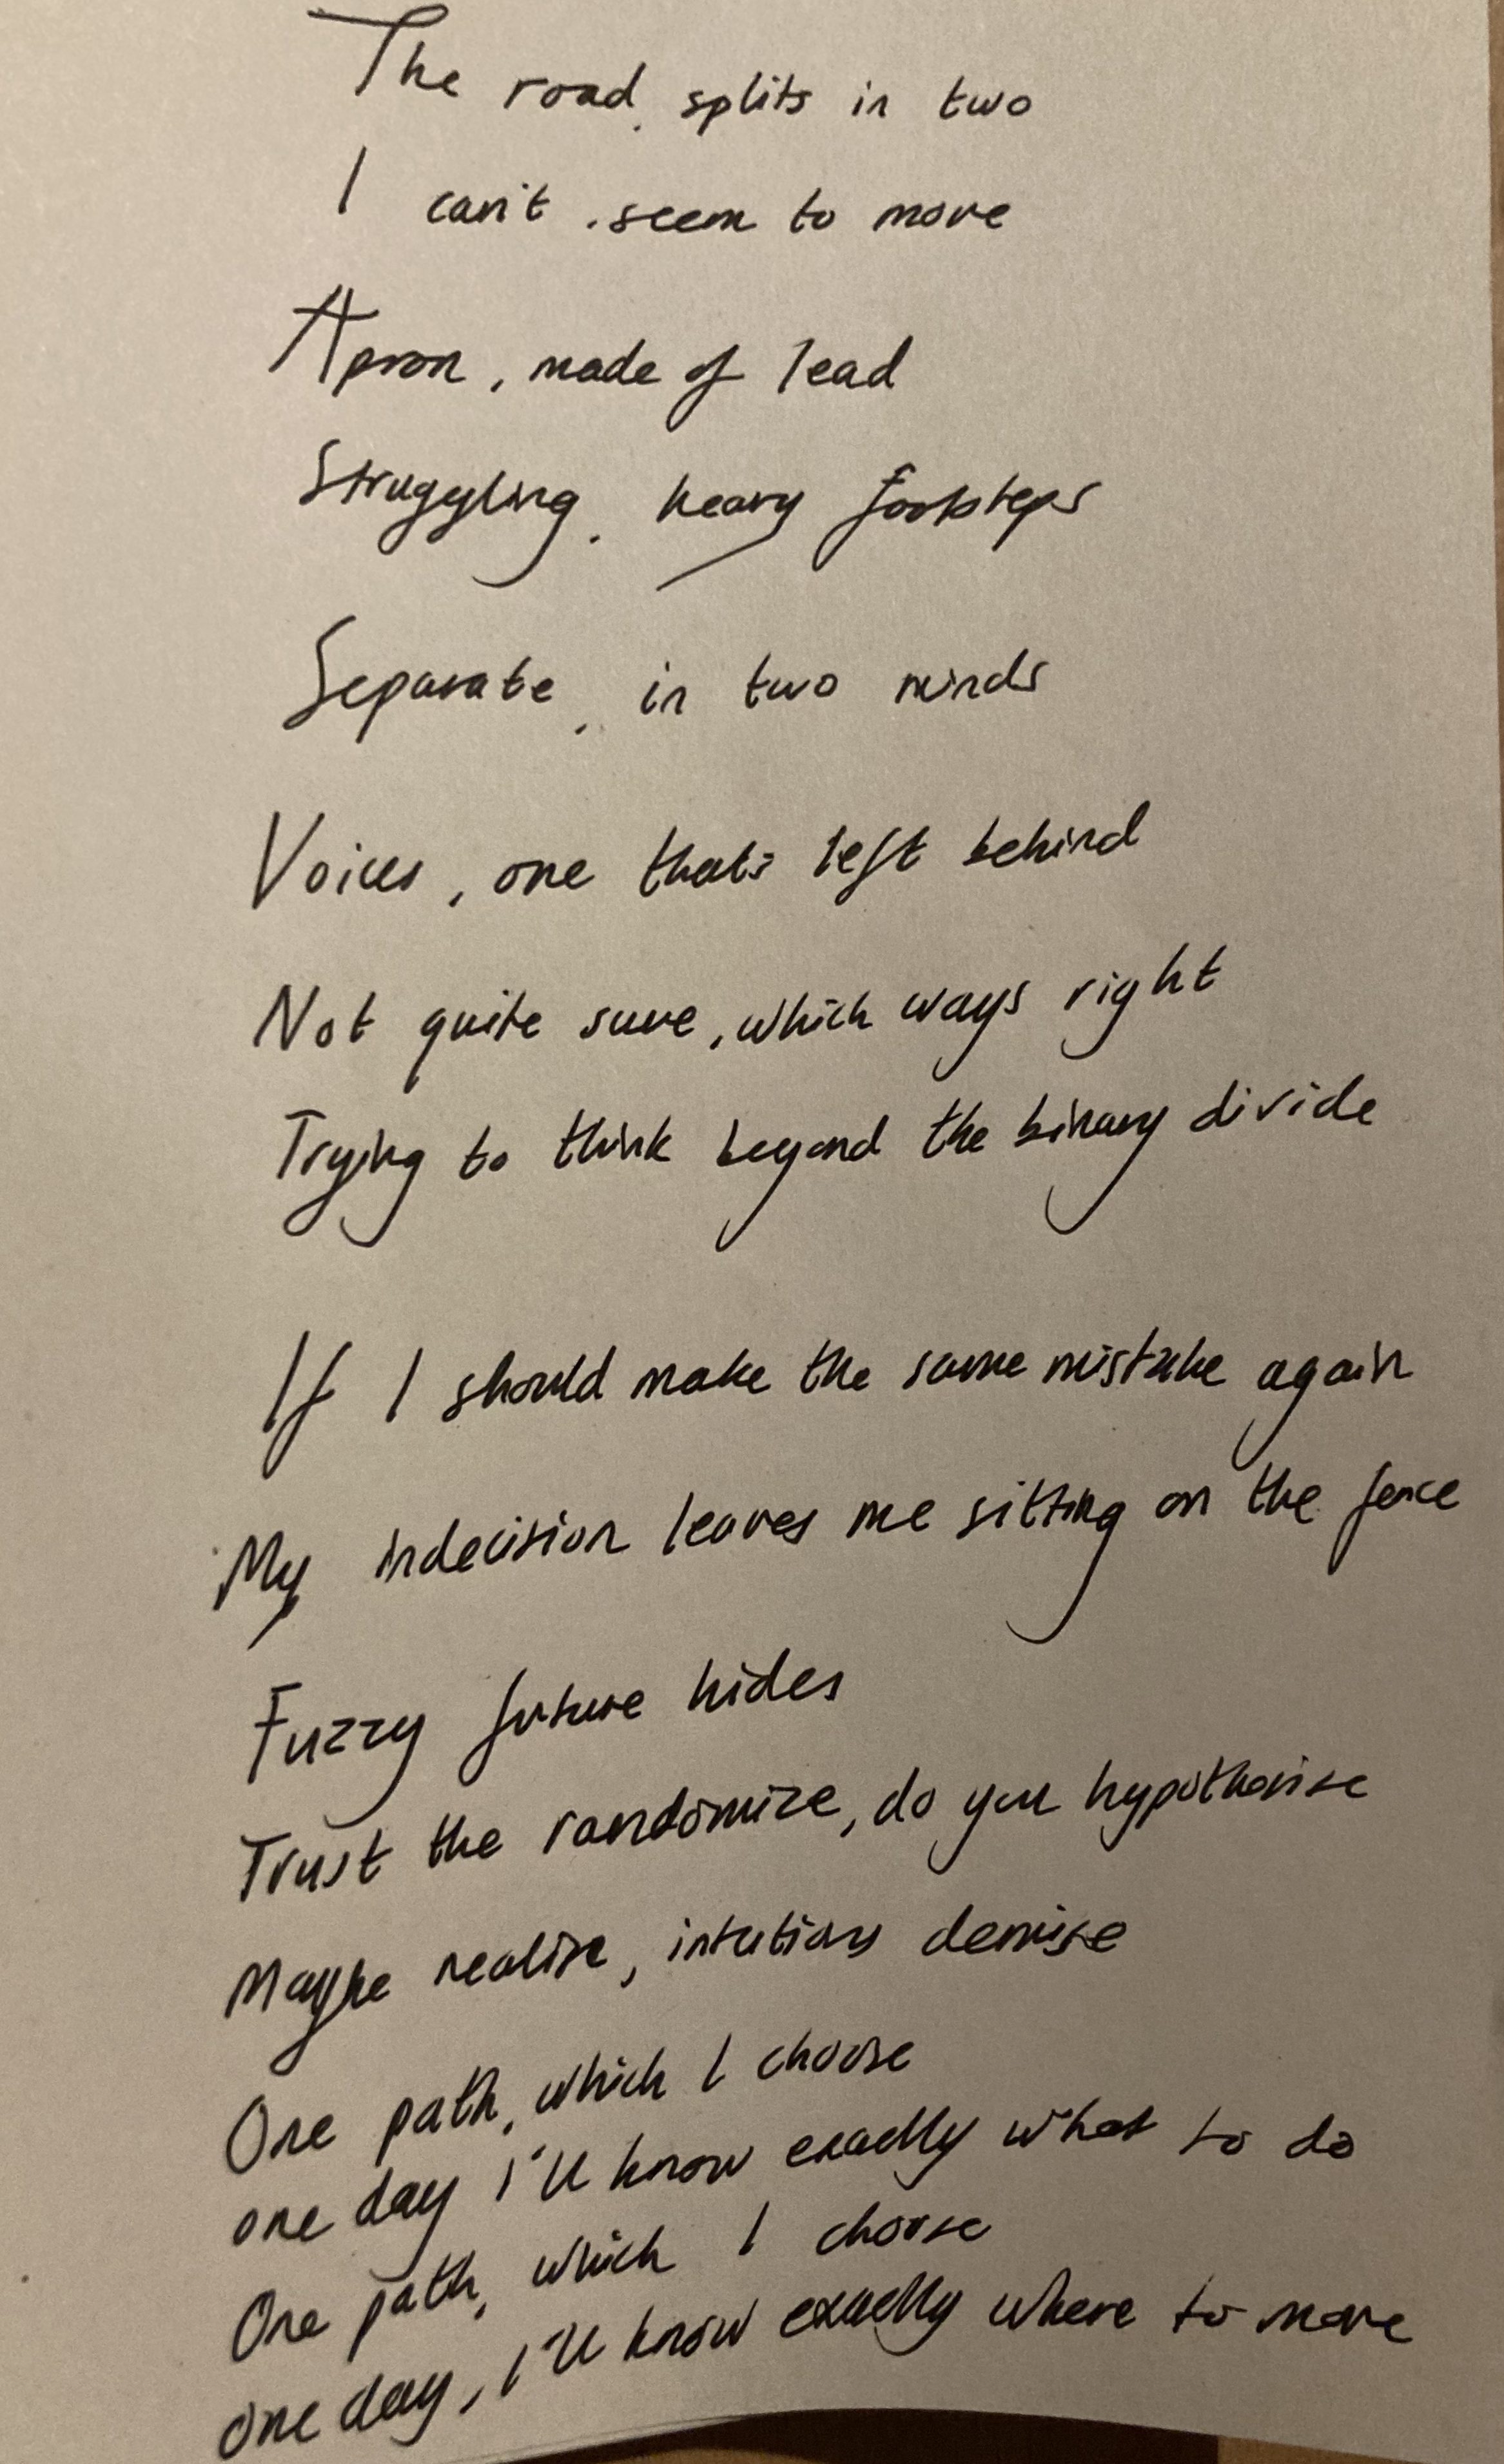 The road, splits in two
I can't, seem to move
Apron, made of lead
Struggling, heavy footsteps
Separate, in two minds
Voices, one that's left behind
Not quite sure, which ways right
Trying to think beyond the binary divide
If I should make the same mistake again
My indecision leaves me sitting on the fence
Fuzzy future hides
Trust the randomize, do you hypothesise
Maybe realise, intutions demise
One path, which I choose
one day i'll know exactly what to do
One path, which I choose
one day, i'll know exactly where to move